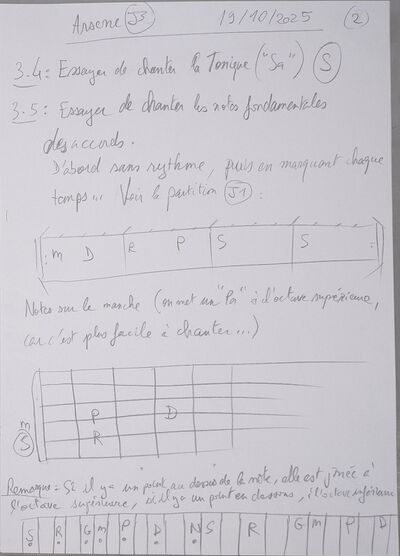 Arsene J3 19/10/2025 2
3.4: Essayer de chanter la Tonique ("Sa") S
3.5: Essayer de chanter les notes fondamentales
des accords.
D'abord sans rythme, puis en marquant chaque
temps... Voir la partition J1 :
m D R P S S
Notes sur le manche (on met un "Pa" à l'octave supérieure,
car c'est plus facile à chanter...)
P D
m
S R
Remarque = Si il y a un point au dessus de la note, elle est jouée à
l'octave supérieure, si il y a un point en dessous, à l'octave inférieure
S R G m P D N S R G m P D